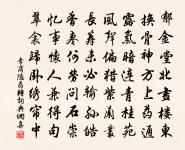 郁金堂北畫樓東
換骨神方上藥通
露氣暗連青桂苑
風聲偏獵紫蘭叢
長籌未必輸孫皓
香棗何勞問石崇
憶事懷人兼得句
翠衾歸臥繡簾中
李商隱藥轉詩詞典網